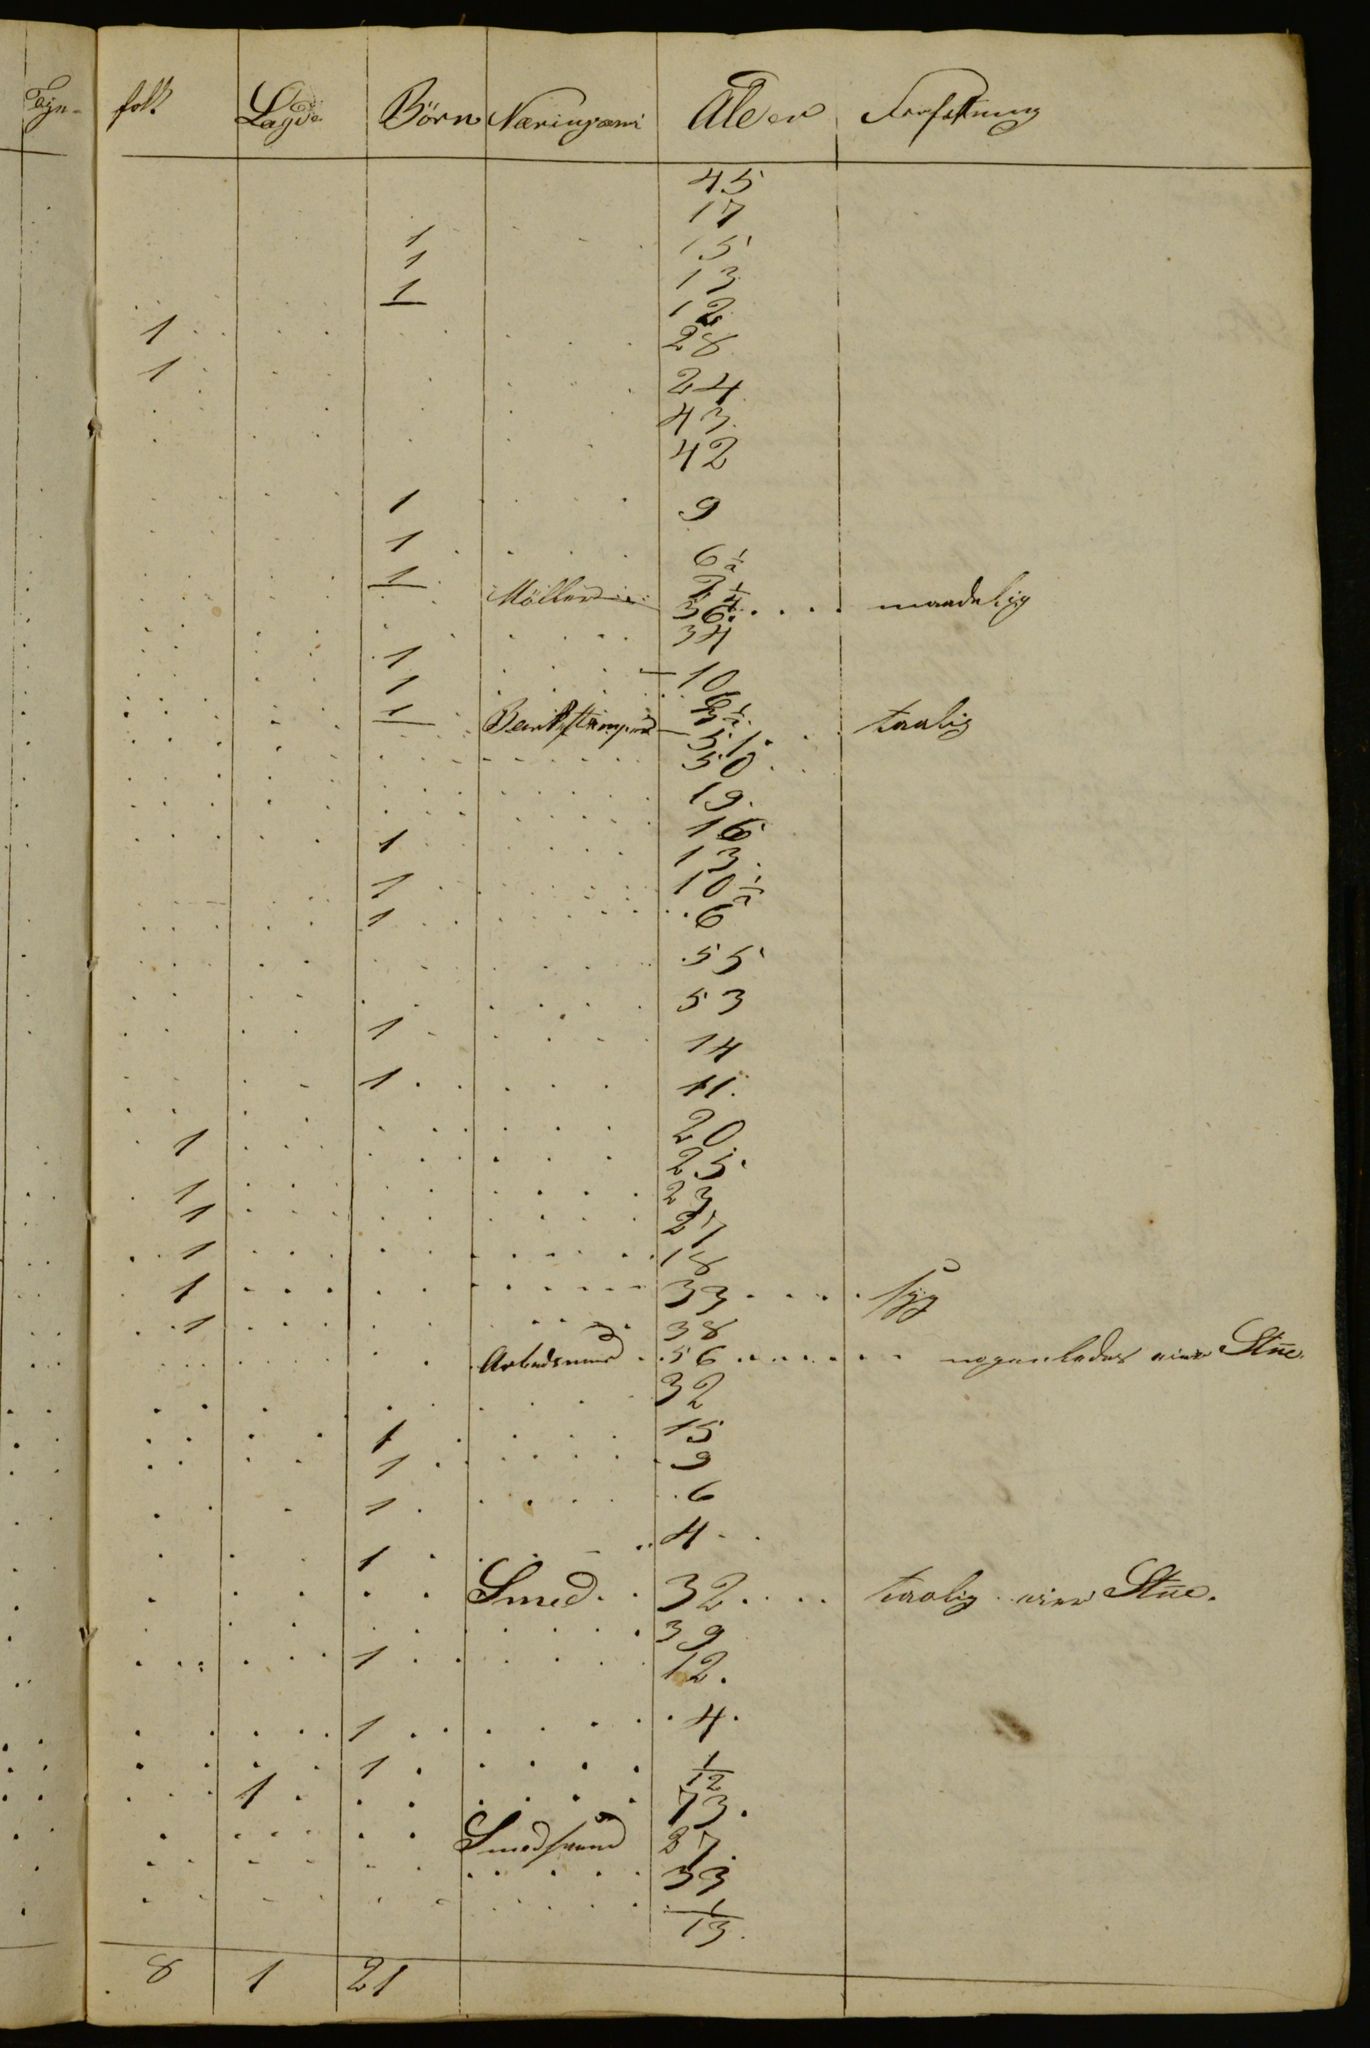 folk Lægd Börn Næringsvei Alder Forfatning
45
17
1 15
1 13
1 12
1 28
1 24
43
42
1 9
1 6 1/2
1 1/4
Möller 36 maadelig
34
1 10
1 6 1/2
1
51 taalig
50
19
16
1 13
1 10 1/2
1 6
55
53
1 14
1 11
20
1 25
1 23
1 27
1 18
1 33 syg
1 38
Arbedsmand 56 nogenledes Stue
32
1 15
1 9
1 6
1 4
Smed 32 taalig Stue
39
1 12
1 4
1 1/12
1 73
Smedsvend 27
33
1/13
8 1 21